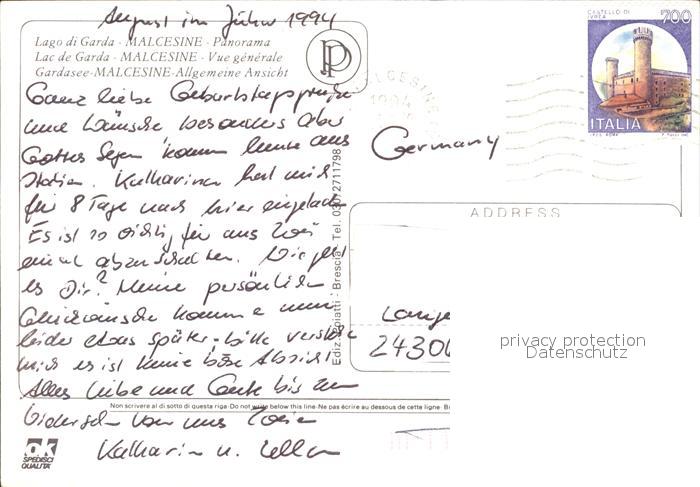 August im Jahre 1994
Lago di Garda - MALCESINE - Panorama
Lac de Garda - MALCESINE - Vue générale
Gardasee-MALCESINE-Allgemeine Ansicht
CASTELLO DI
IVREA
700
ITALIA
MALCESINE
1994
Germany
ADDRESS
Ganz liebe Geburtstagsgrüße
und Wünsche besonders aber
Gottes Segen kommen heute aus
Italien. Katharina hat mich
für 8 Tage nach hier eingeladen
Es ist so richtig für uns Zwei
einmal abzuschalten. Wie geht
es Dir? Meine persönlichen
Glückwünsche kommen nun
leider etwas später, bitte verstehe
mich es ist keine böse Absicht
Alles Liebe und Gute bis zum
Wiedersehn von uns Zweien
Katharina u.
Brescia - Tel. 030/2711798
Lange
24306
privacy protection
Datenschutz
Non scrivere al di sotto di questa riga-Do not write below this line-Ne pas écrire au dessous de cette ligne-
ok
SPEDISCI
QUALITA'